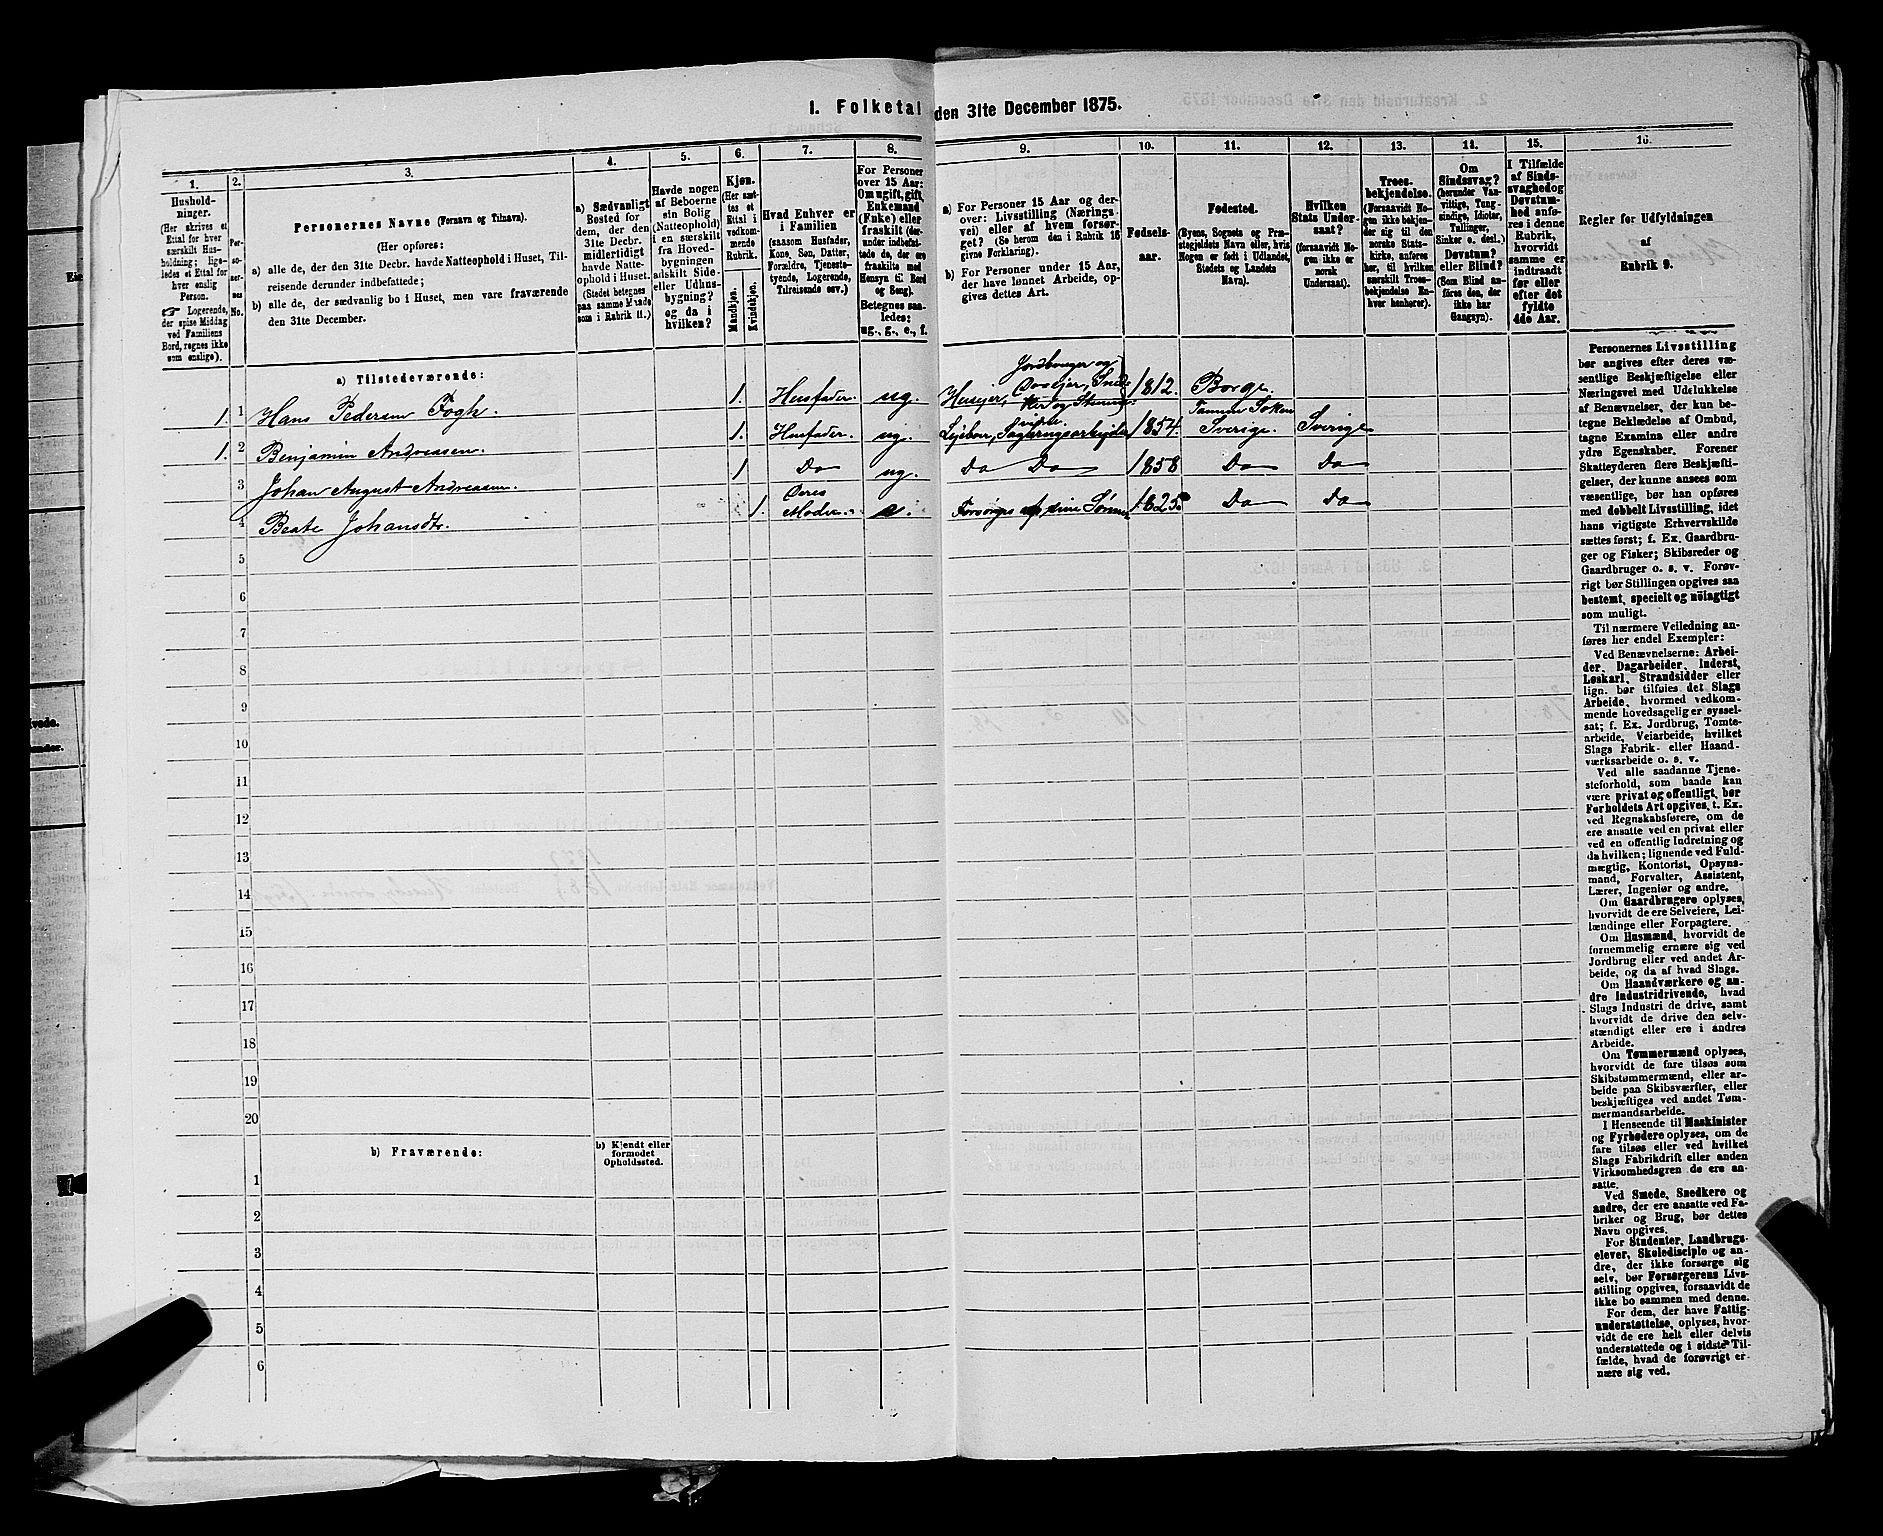 I. Folketal den 31te December 1875.
1.
2.
3.
4.
5.
6.
7.
8.
9.
10.
11.
12.
13.
14.
15.
16.
Hushold-
ninger.
(Her skrives et
Ettal for hver
særskilt Hus-
holdning; lige-
ledes et Ettal for
hver enslig
Person.
☞ Logerende,
der spise Middag
ved Familiens
Bord, regnes ikke
som enslige).
Per-
so-
ner-
nes
No.
Personernes Navne (Fornavn og Tilnavn).
(Her opføres:
a) alle de, der den 31te Decbr. havde Natteophold i Huset, Til-
reisende derunder indbefattede;
b) alle de, der sædvanlig bo i Huset, men vare fraværende
den 31te December.
a) Sædvanligt
Bosted for
dem, der den
31te Decbr.
midlertidigt
havde Natte-
ophold i Huset.
(Stedet betegnes
paa samme Maade
som i Rubrik 11.)
Havde nogen
af Beboerne
sin Bolig
(Natteophold)
i en særskilt
fra Hoved-
bygningen
adskilt Side-
eller Udhus-
bygning?
og da i
hvilken?
Kjøn.
(Her sæt-
tes et
Ettal i
vedkom-
mende
Rubrik.
Mandkjøn.
Kvindekjøn.
Hvad Enhver er
i Familien
(saasom Husfader,
Kone, Søn, Datter,
Forældre, Tjeneste-
tyende, Logerende,
Tilreisende osv.)
For Personer
over 15 Aar:
Om ugift, gift,
Enkemand
(Enke) eller
fraskilt (der-
under indbefat-
tede de, der ere
fraskilte med
Hensyn til Bord
og Seng).
Betegnes saa-
ledes:
ug., g., e., f.
a) For Personer 15 Aar og der-
over: Livsstilling (Nærings-
vei) eller af hvem forsør-
get? (Se herom den i Rubrik 16
givne Forklaring).
b) For Personer under 15 Aar,
der have lønnet Arbeide, op-
gives dettes Art.
Fødsels-
aar.
Fødested.
(Byens, Sognets og Præ-
stegjeldets Navn eller, hvis
Nogen er født i Udlandet,
Stedets og Landets
Navn).
Hvilken
Stats Under-
saat?
(forsaavidt No-
gen ikke er
norsk
Undersaat).
Troes-
bekjendelse.
(Forsaavidt No-
gen ikke bekjen-
der sig til den
norske Stats-
kirke, anføres
her, til hvilken
særskilt Troes-
bekjendelse En-
hver henhører).
Om
Sindssvag?
(herunder Van-
vittige, Tung-
sindige, Idioter,
Tullinger,
Sinker o. desl.).
Døvstum?
eller Blind?
(Som Blind an-
føres den, der
ikke har
Gangsyn).
I Tilfælde
af Sinds-
svaghed og
Døvstum-
hed anfø-
res i denne
Rubrik,
hvorvidt
samme er
indtraadt
før eller
efter det
fyldte
4de Aar.
Regler for Udfyldningen
af
Rubrik 9.
a) Tilstedeværende:
1. 1 Hans Pedersen Fogh. 1. Husfader. ug. Huseier, Jordbruger og 1812. Borge.
1. 2 Benjamin Andreassen. 1. Husfader. ug. 1854. Sverige. Sverige
3 Johan August Andreassen. 1 Do ug. Do Do 1858 Do Do
4 Beate Johansdtr. 1. Deres Moder. e. Forsørges af sine Sønner 1825 Do Do
5
6
7
8
9
10
11
12
13
14
15
16
17
18
19
20
b) Fraværende:
b) Kjendt eller
formodet
Opholdssted.
1
2
3
4
5
6
Personernes Livsstilling
bør angives efter deres væ-
sentlige Beskjæftigelse eller
Næringsvei med Udelukkelse
af Benævnelser, der kun be-
tegne Beklædelse af Ombud,
tagne Examina eller andre
ydre Egenskaber. Forener
Skatteyderen flere Beskjæfti-
gelser, der kunne ansees som
væsentlige, bør han opføres
med dobbelt Livsstilling, idet
hans vigtigste Erhvervskilde
sættes først; f. Ex. Gaardbru-
ger og Fisker; Skibsreder og
Gaardbruger o. s. v. Forøv-
rigt bør Stillingen opgives saa
bestemt, specielt og nöiagtigt
som muligt.
Til nærmere Veiledning an-
føres her endel Exempler:
Ved Benævnelserne: Arbei-
der, Dagarbeider, Inderst,
Løskarl, Strandsidder eller
lign. bør tilføies det Slags
Arbeide, hvormed vedkom-
mende hovedsagelig er syssel-
sat; f. Ex. Jordbrug, Tomte-
arbeide, Veiarbeide, hvilket
Slags Fabrik- eller Haand-
værksarbeide o. s. v.
Ved alle saadanne Tjene-
steforhold, som baade kan
være privat og offentligt, bør
Forholdets Art opgives, t. Ex.
ved Regnskabsførere, om de
ere ansatte ved en privat eller
ved en offentlig Indretning og
da hvilken; lignende ved Fuld-
mægtig, Kontorist, Opsyns-
mand, Forvalter, Assistent,
Lærer, Ingeniør og andre.
Om Gaardbrugere oplyses,
hvorvidt de ere Selveiere, Lei-
lændinge eller Forpagtere.
Om Husmænd, hvorvidt de
fornemmelig ernære sig ved
Jordbrug eller ved andet Ar-
beide, og da af hvad Slags.
Om Haandværkere og an-
dre Industridrivende, hvad
Slags Industri de drive, samt
hvorvidt de drive den selv-
stændigt eller ere i andres
Arbeide.
Om Tømmermænd oplyses,
hvorvidt de fare tilsøs som
Skibstømmermænd, eller ar-
beide paa Skibsværfter, eller
beskjæftiges ved andet Tøm-
mermandsarbeide.
I Henseende til Maskinister
og Fyrbødere oplyses, om de
fare tilsøs eller ved hvilket
Slags Fabrikdrift eller anden
Virksomhedsgren de ere an-
satte.
Ved Smede, Snedkere og
andre, der ere ansatte ved Fa-
briker og Brug, bør dettes
Navn opgives.
For Studenter, Landbrugs-
elever, Skoledisciple og an-
dre, der ikke forsørge sig
selv, bør Forsørgerens Livs-
stilling opgives, forsaavidt de
ikke bo sammen med denne.
For dem, der have Fattig-
understøttelse, oplyses, hvor-
vidt de ere helt eller delvis
understøttede og i sidste Til-
fælde, hvad de forøvrigt er-
nære sig ved.